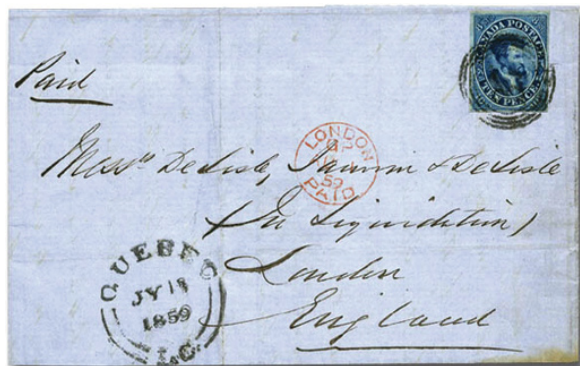 Paid
CANADA POSTAGE
TEN PENCE
LONDON
59
PAID
Messrs DeLisle, Janvrin & DeLisle
(In Liquidation)
London
England
QUEBEC
JY 18
1859
L.C.